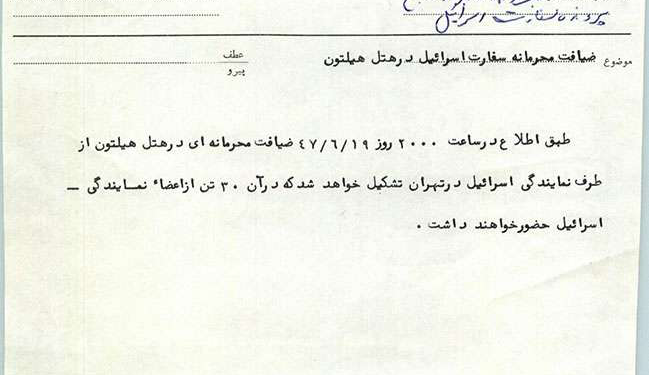 پرونده سفارت اسرائیل
موضوع ضیافت محرمانه سفارت اسرائیل در هتل هیلتون
عطف
پیرو
طبق اطلاع در ساعت ۲۰۰۰ روز ۴۷/۶/۱۹ ضیافت محرمانه ای در هتل هیلتون از
طرف نمایندگی اسرائیل در تهران تشکیل خواهد شد که در آن ۳۰ تن از اعضاء نمایندگی –
اسرائیل حضور خواهند داشت .